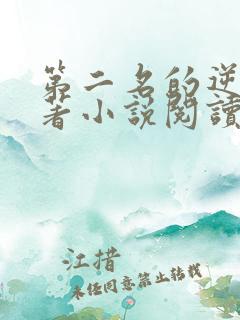 第二名的逆
著小说閱讀
江措
未经同意禁止转载